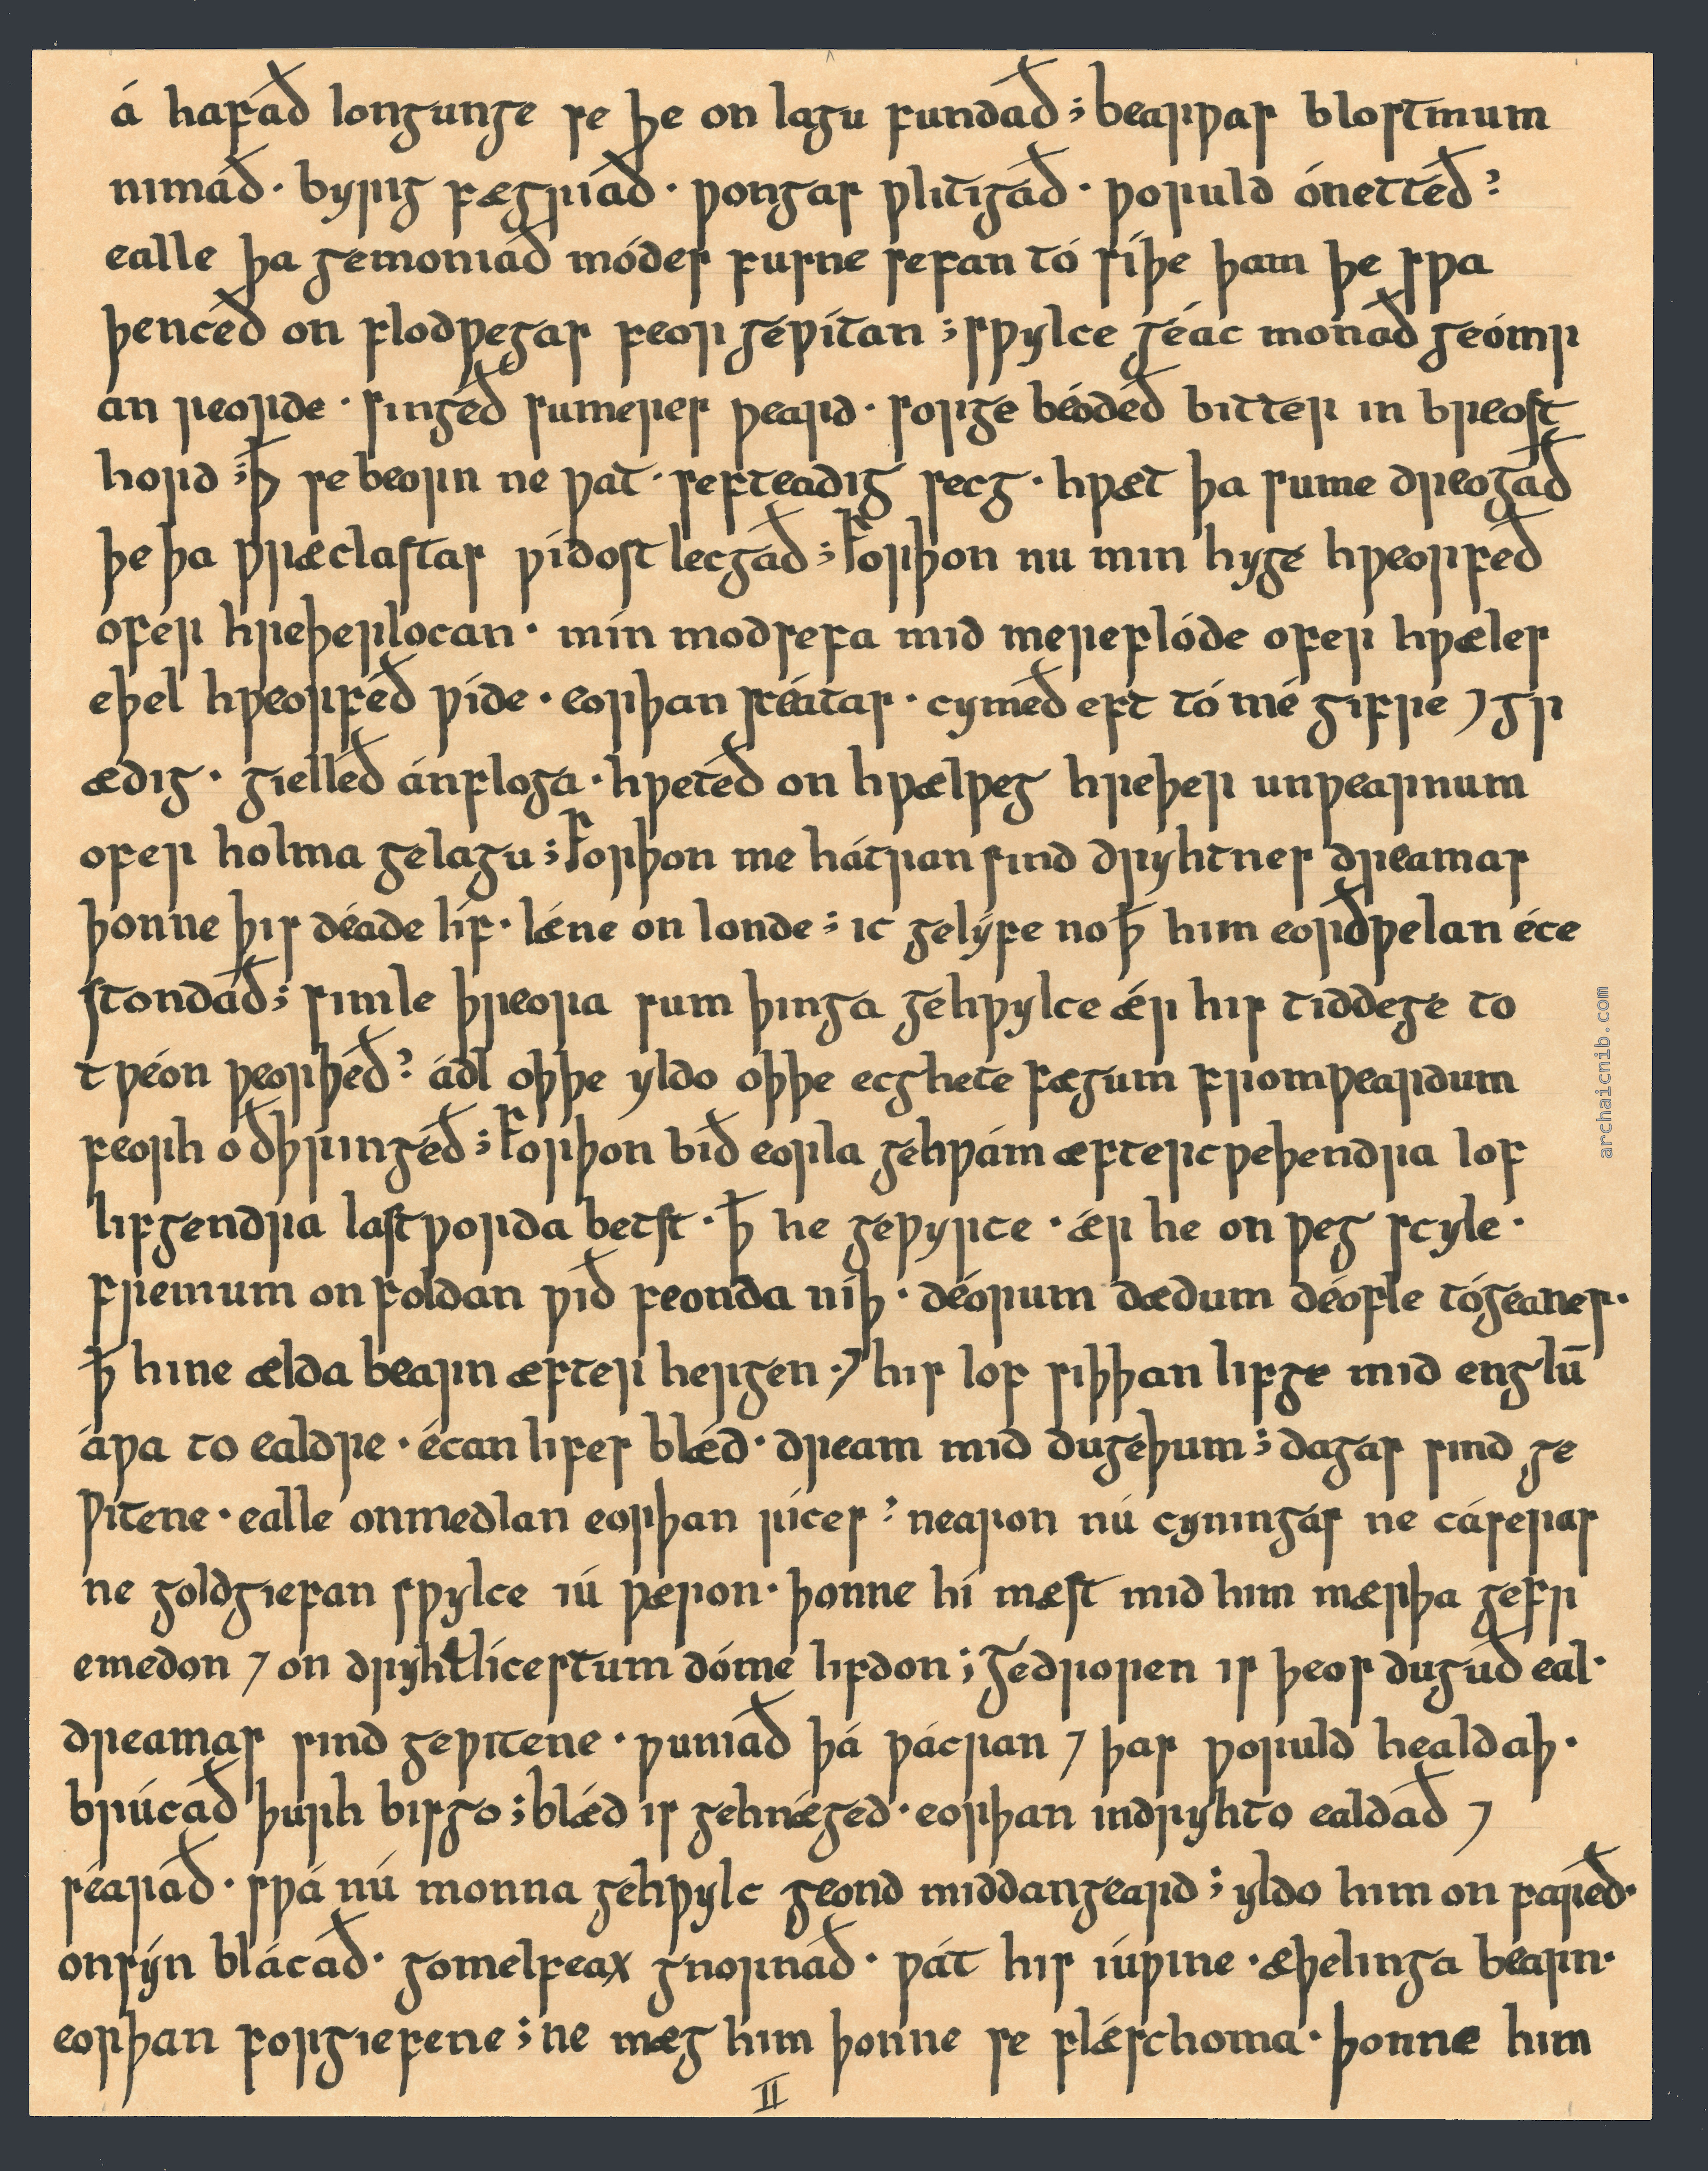 á hafað longunge se þe on lagu fundað; bearƿas blostmum
nimað· byrig fægriað· ƿongas ƿlitigað· ƿoruld ónetteð?
ealle þa gemoniað módes fusne sefan tó síþe þam þe sƿa
þenceð on flodƿegas feor geƿítan; sƿylce géac monað geómr
an reorde· singeð sumeres ƿeard· sorge béodeð bitter in breost
hord; ꝥ se beorn ne ƿat· sefteadig secg· hƿæt þa sume dreogað
þe þa ƿræclastas ƿidost lecgað; forþon nu min hyge hƿeorfeð
ofer hreþerlocan· mín modsefa mid mereflóde ofer hƿæles
eþel hƿeorfeð ƿíde· eorþan scéatas· cymeð eft tó mé gifre ⁊ gr
ædig· gielleð ánfloga· hƿeteð on hƿælƿeg hreþer unƿearnum
ofer holma gelagu; forþon me hátran sind dryhtnes dreamas
þonne þis déade líf· lǽne on londe; ic gelýfe no ꝥ him eorðƿelan éce
stondað; simle þreora sum þinga gehƿylce ǽr his tiddege to
tƿéon ƿeorþeð? ádl oþþe yldo oþþe ecghete fægum fromƿeardum
feorh oðþringeð; forþon bið eorla gehƿám æftercƿeþendra lof
lifgendra lastƿorda betst· ꝥ he geƿyrce· ǽr he on ƿeg scyle·
fremum on foldan ƿið feonda níþ· déorum dædum déofle tógéanes·
ꝥ hine ælda bearn æfter hergen· ⁊ his lof siþþan lifge mid englū
áƿa to ealdre· écan lifes blǽd· dream mid dugeþum; dagas sind ge
ƿitene· ealle onmedlan eorþan rices? nearon nú cyningas ne cáseras
ne goldgiefan sƿylce iú ƿæron· þonne hí mæst mid him mærþa gefr
emedon ⁊ on dryhtlicestum dóme lifdon; Gedroren is þeos duguð eal·
dreamas sind geƿitene· ƿuniað þá ƿácran ⁊ þas ƿoruld healdaþ·
brúcað þurh bisgo; blǽd is gehnǽged· eorþan indryhto ealdað ⁊
séarað· sƿá nú monna gehƿylc geond middangeard; yldo him on fareð·
onsýn blácað· gomelfeax gnornað· ƿát his iúƿine· æþelinga bearn·
eorþan forgiefene; ne mæg him þonne se flǽschoma· þonne him
II
archaicnib.com